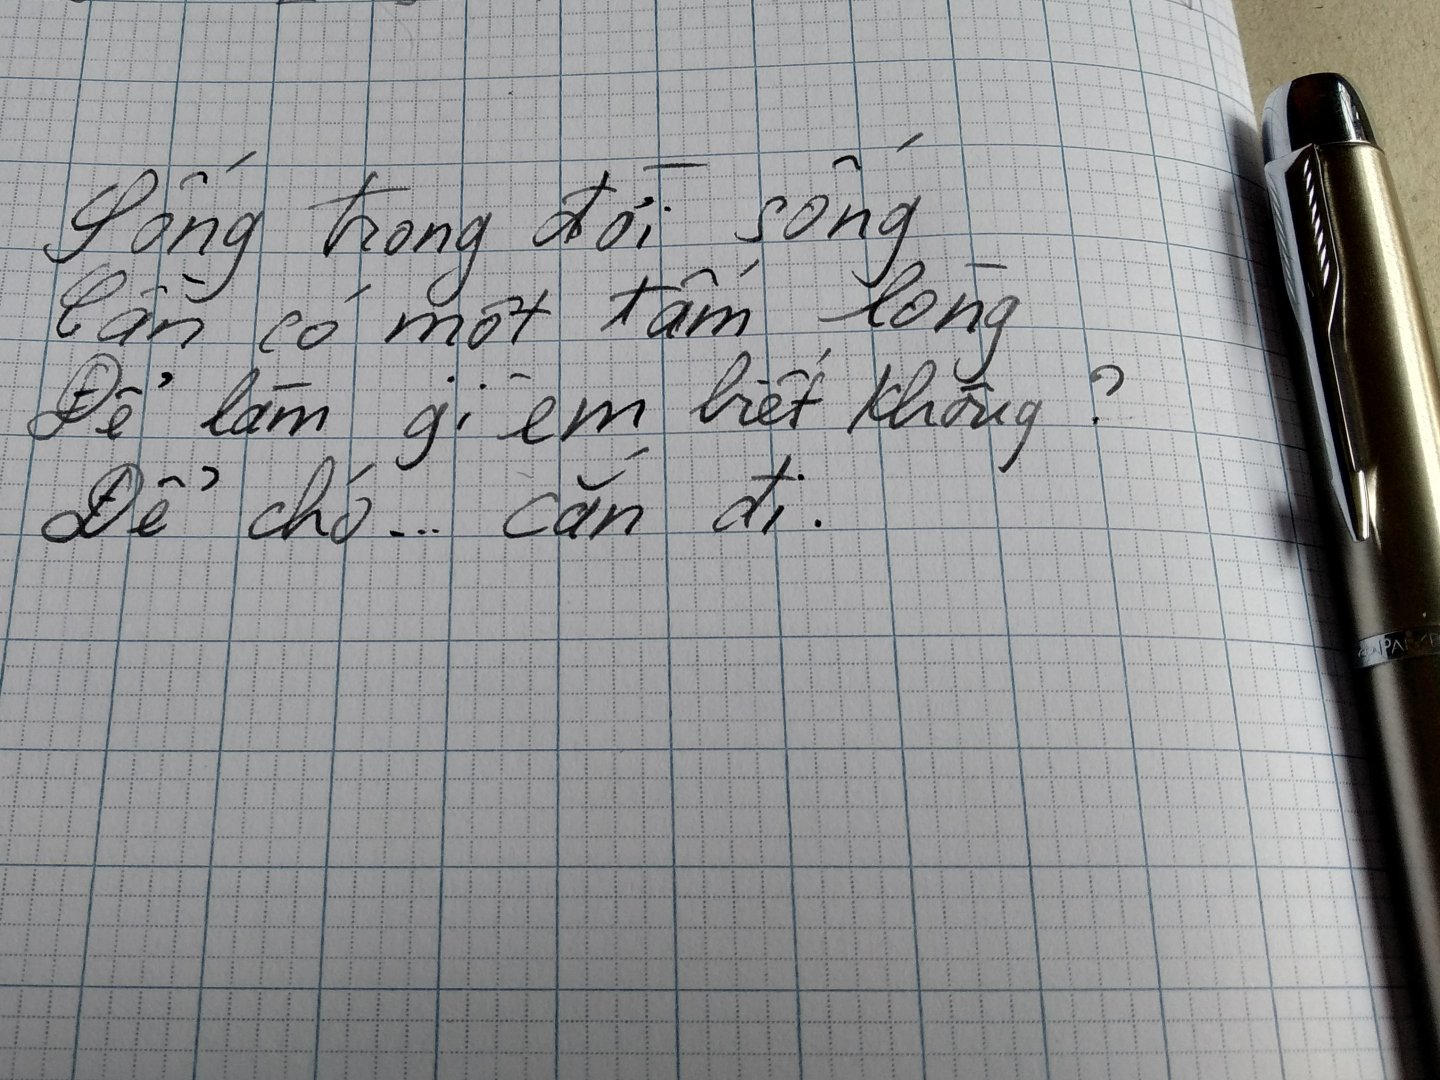 Sống trong đời sống
Cần có một tấm lòng
Để làm gì em biết không ?
Để chó... cắn đi.